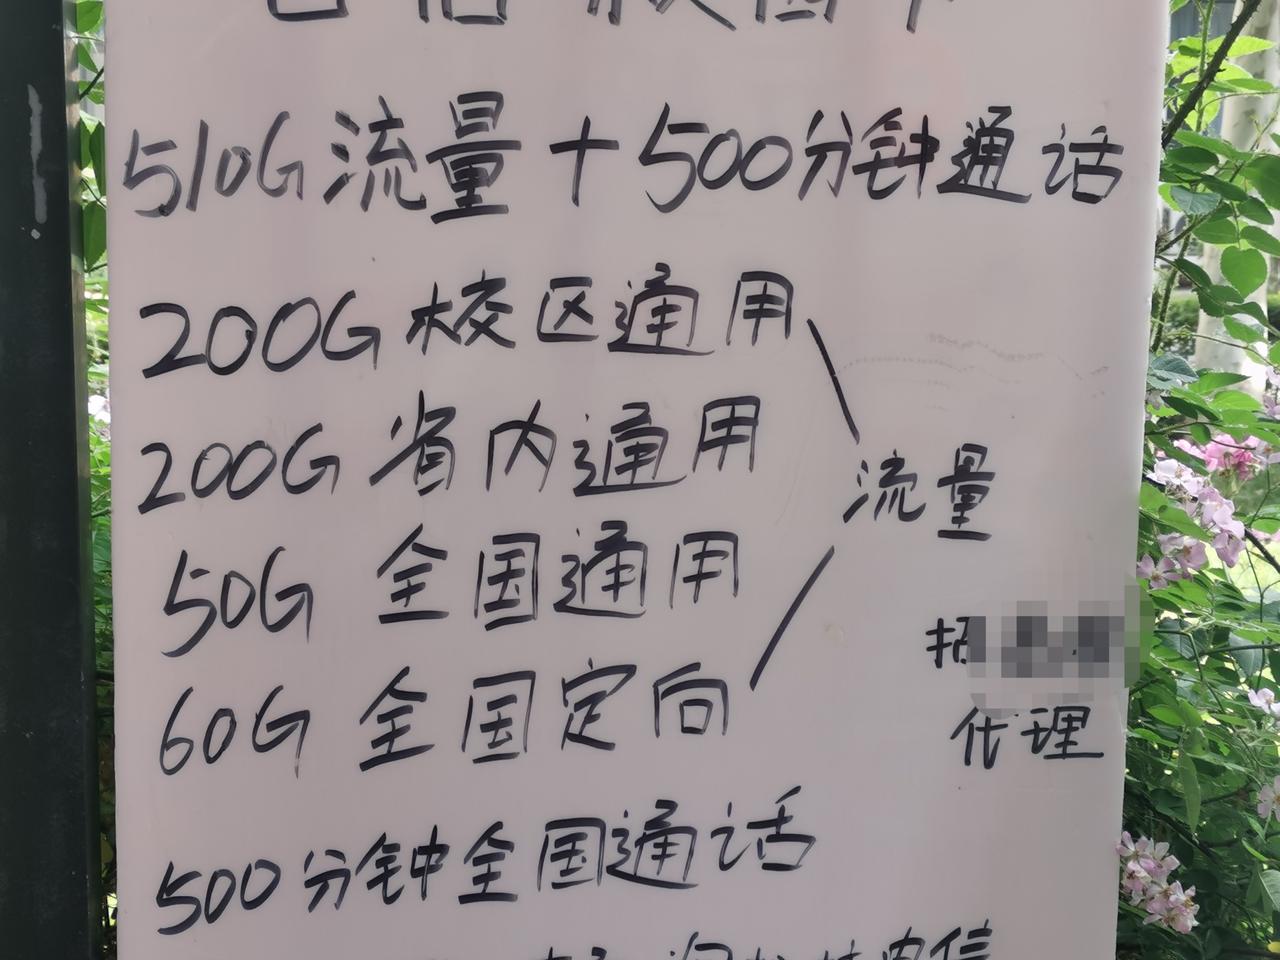 510G流量+500分钟通话
200G校区通用
200G省内通用
流量
50G全国通用
60G全国定向
招
代理
500分钟全国通话
电信